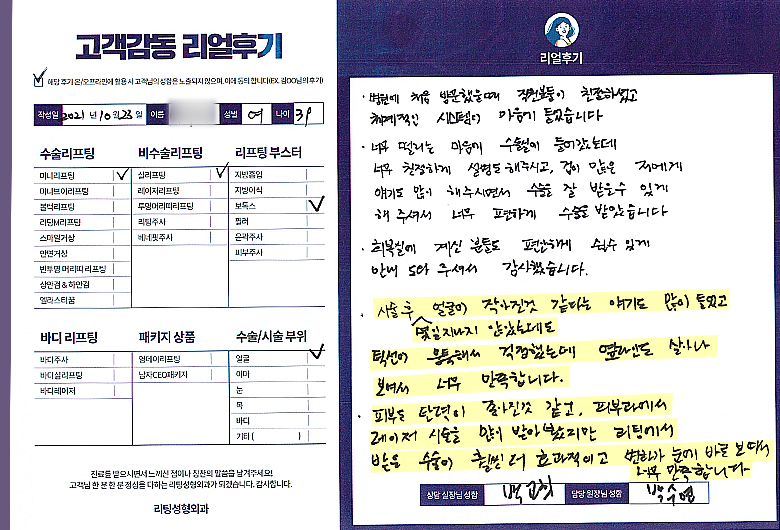 고객감동 리얼후기
해당 후기 온/오프라인에 활용 시 고객님의 성함은 노출되지 않으며, 이에 동의 합니다(EX. 김OO님의 후기)
작성일 2021년 10월 23일 이름 성별 여 나이 39
수술리프팅
미니리프팅
미니브이리프팅
볼럭리프팅
리팅M리프팅
스마일거상
안면거상
빈투명 머리띠 리프팅
상안검 & 하안검
엘라스티꿈
비수술리프팅
실리프팅
레이저리프팅
투명머리띠리프팅
리팅주사
베네핏주사
리프팅 부스터
지방흡입
지방이식
보톡스
필러
윤곽주사
피부주사
바디 리프팅
바디주사
바디실리프팅
바디레이저
패키지 상품
원데이리프팅
남자CEO패키지
수술/시술 부위
얼굴
이마
눈
목
바디
기타 ( )
진료를 받으시면서 느끼신 점이나 칭찬의 말씀을 남겨주세요!
고객님 한 분 한 분 정성을 다하는 리팅성형외과가 되겠습니다. 감사합니다.
리팅성형외과
리얼후기
· 병원에 처음 방문했을때 직원분들이 친절하셨고
체계적인 시스템이 마음에 들었습니다
· 너무 떨리는 마음에 수술실이 들어갔는데
너무 친절하게 설명도 해주시고, 겁이 많은 저에게
얘기도 많이 해주시면서 수술을 잘 받을수 있게
해 주셔서 너무 편안하게 수술을 받았습니다
· 회복실에 계신 분들도 편안하게 쉴수 있게
안내 도와 주셔서 감사했습니다.
· 시술 후 얼굴이 작아진것 같다는 얘기도 많이 들었고
몇일지나지 않았는데도
턱선이 울퉁해서 걱정했는데 옆라인도 살아나
보여서 너무 만족합니다.
· 피부도 탄력이 좋아진것 같고, 피부과에서
레이저 시술을 많이 받아봤지만 리팅에서
받은 수술이 훨씬 더 효과적이고 변화가 눈에 바로 보여서
너무 만족합니다
상담 실장님 성함 담당 원장님 성함 박수영